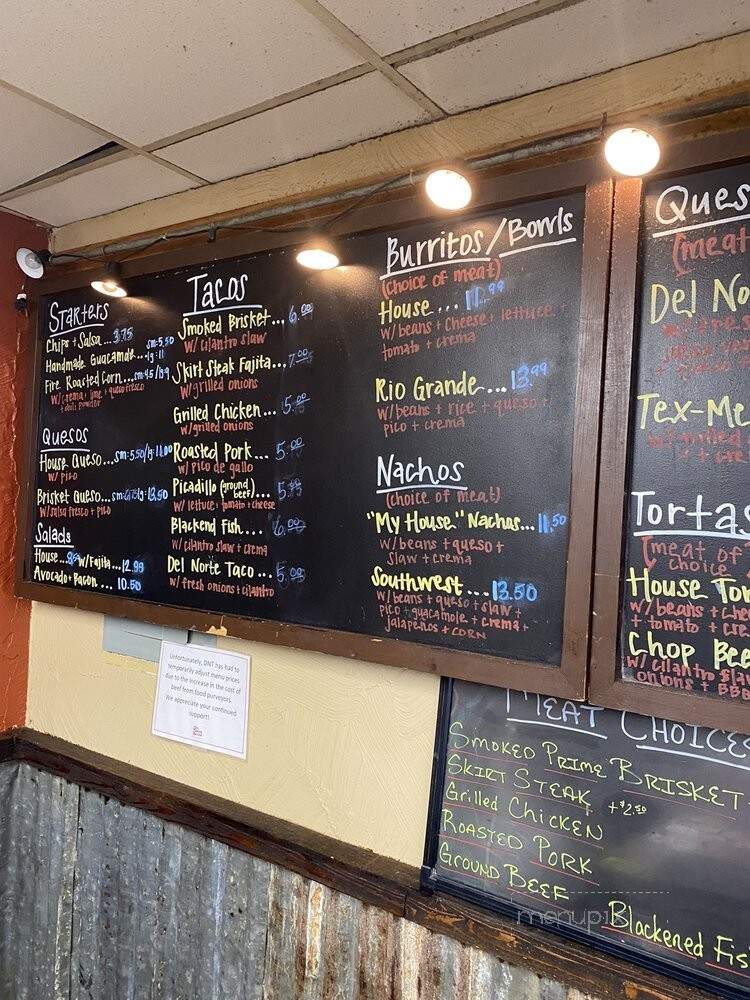 Starters
Chips + Salsa... 3.75
Handmade Guacamole... sm: 5.50 lg: 11
Fire Roasted Corn...
w/ crema + lime + queso fresco
+ chili powder
Quesos
House Queso... sm: 5.50/lg: 11.00
w/ pico
Brisket Queso...
w/ salsa fresca + pico
Salads
House... w/ Fajita... 12.99
Avocado + Bacon... 10.50
Tacos
Smoked Brisket... 6.00
w/ cilantro slaw
Skirt Steak Fajita...
w/ grilled onions
Grilled Chicken...
w/ grilled onions
Roasted Pork...
w/ pico de gallo
Picadillo (ground beef)...
w/ lettuce + tomato + cheese
Blackend Fish...
w/ cilantro slaw + crema
Del Norte Taco...
w/ fresh onions + cilantro
Burritos/Bowls
(choice of meat)
House... 11.99
w/ beans + cheese + lettuce +
tomato + crema
Rio Grande... 13.99
w/ beans + rice + queso +
pico + crema
Nachos
(choice of meat)
"My House" Nachos... 11.50
w/ beans + queso +
slaw + crema
Southwest... 13.50
w/ beans + queso + slaw +
pico + guacamole + crema +
jalapeños + corn
Ques
(meat
Del No
Tex-Me
Tortas
(meat of choice
House Tor
w/ beans + che
+ tomato + cre
Chop Bee
w/ cilantro slaw
onions + BB
Unfortunately, DNT has had to
temporarily adjust menu prices
due to the increase in the cost of
beef from food purveyors.
We appreciate your continued
support!
Meat Choices
Smoked Prime Brisket
Skirt Steak +$2.50
Grilled Chicken
Roasted Pork
Ground Beef
Blackened Fis
menupix